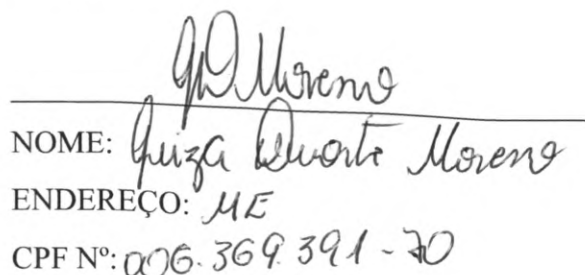 GDMoreno
NOME: Guiza Duarte Moreno
ENDEREÇO: ME
CPF Nº: 006.369.391-70